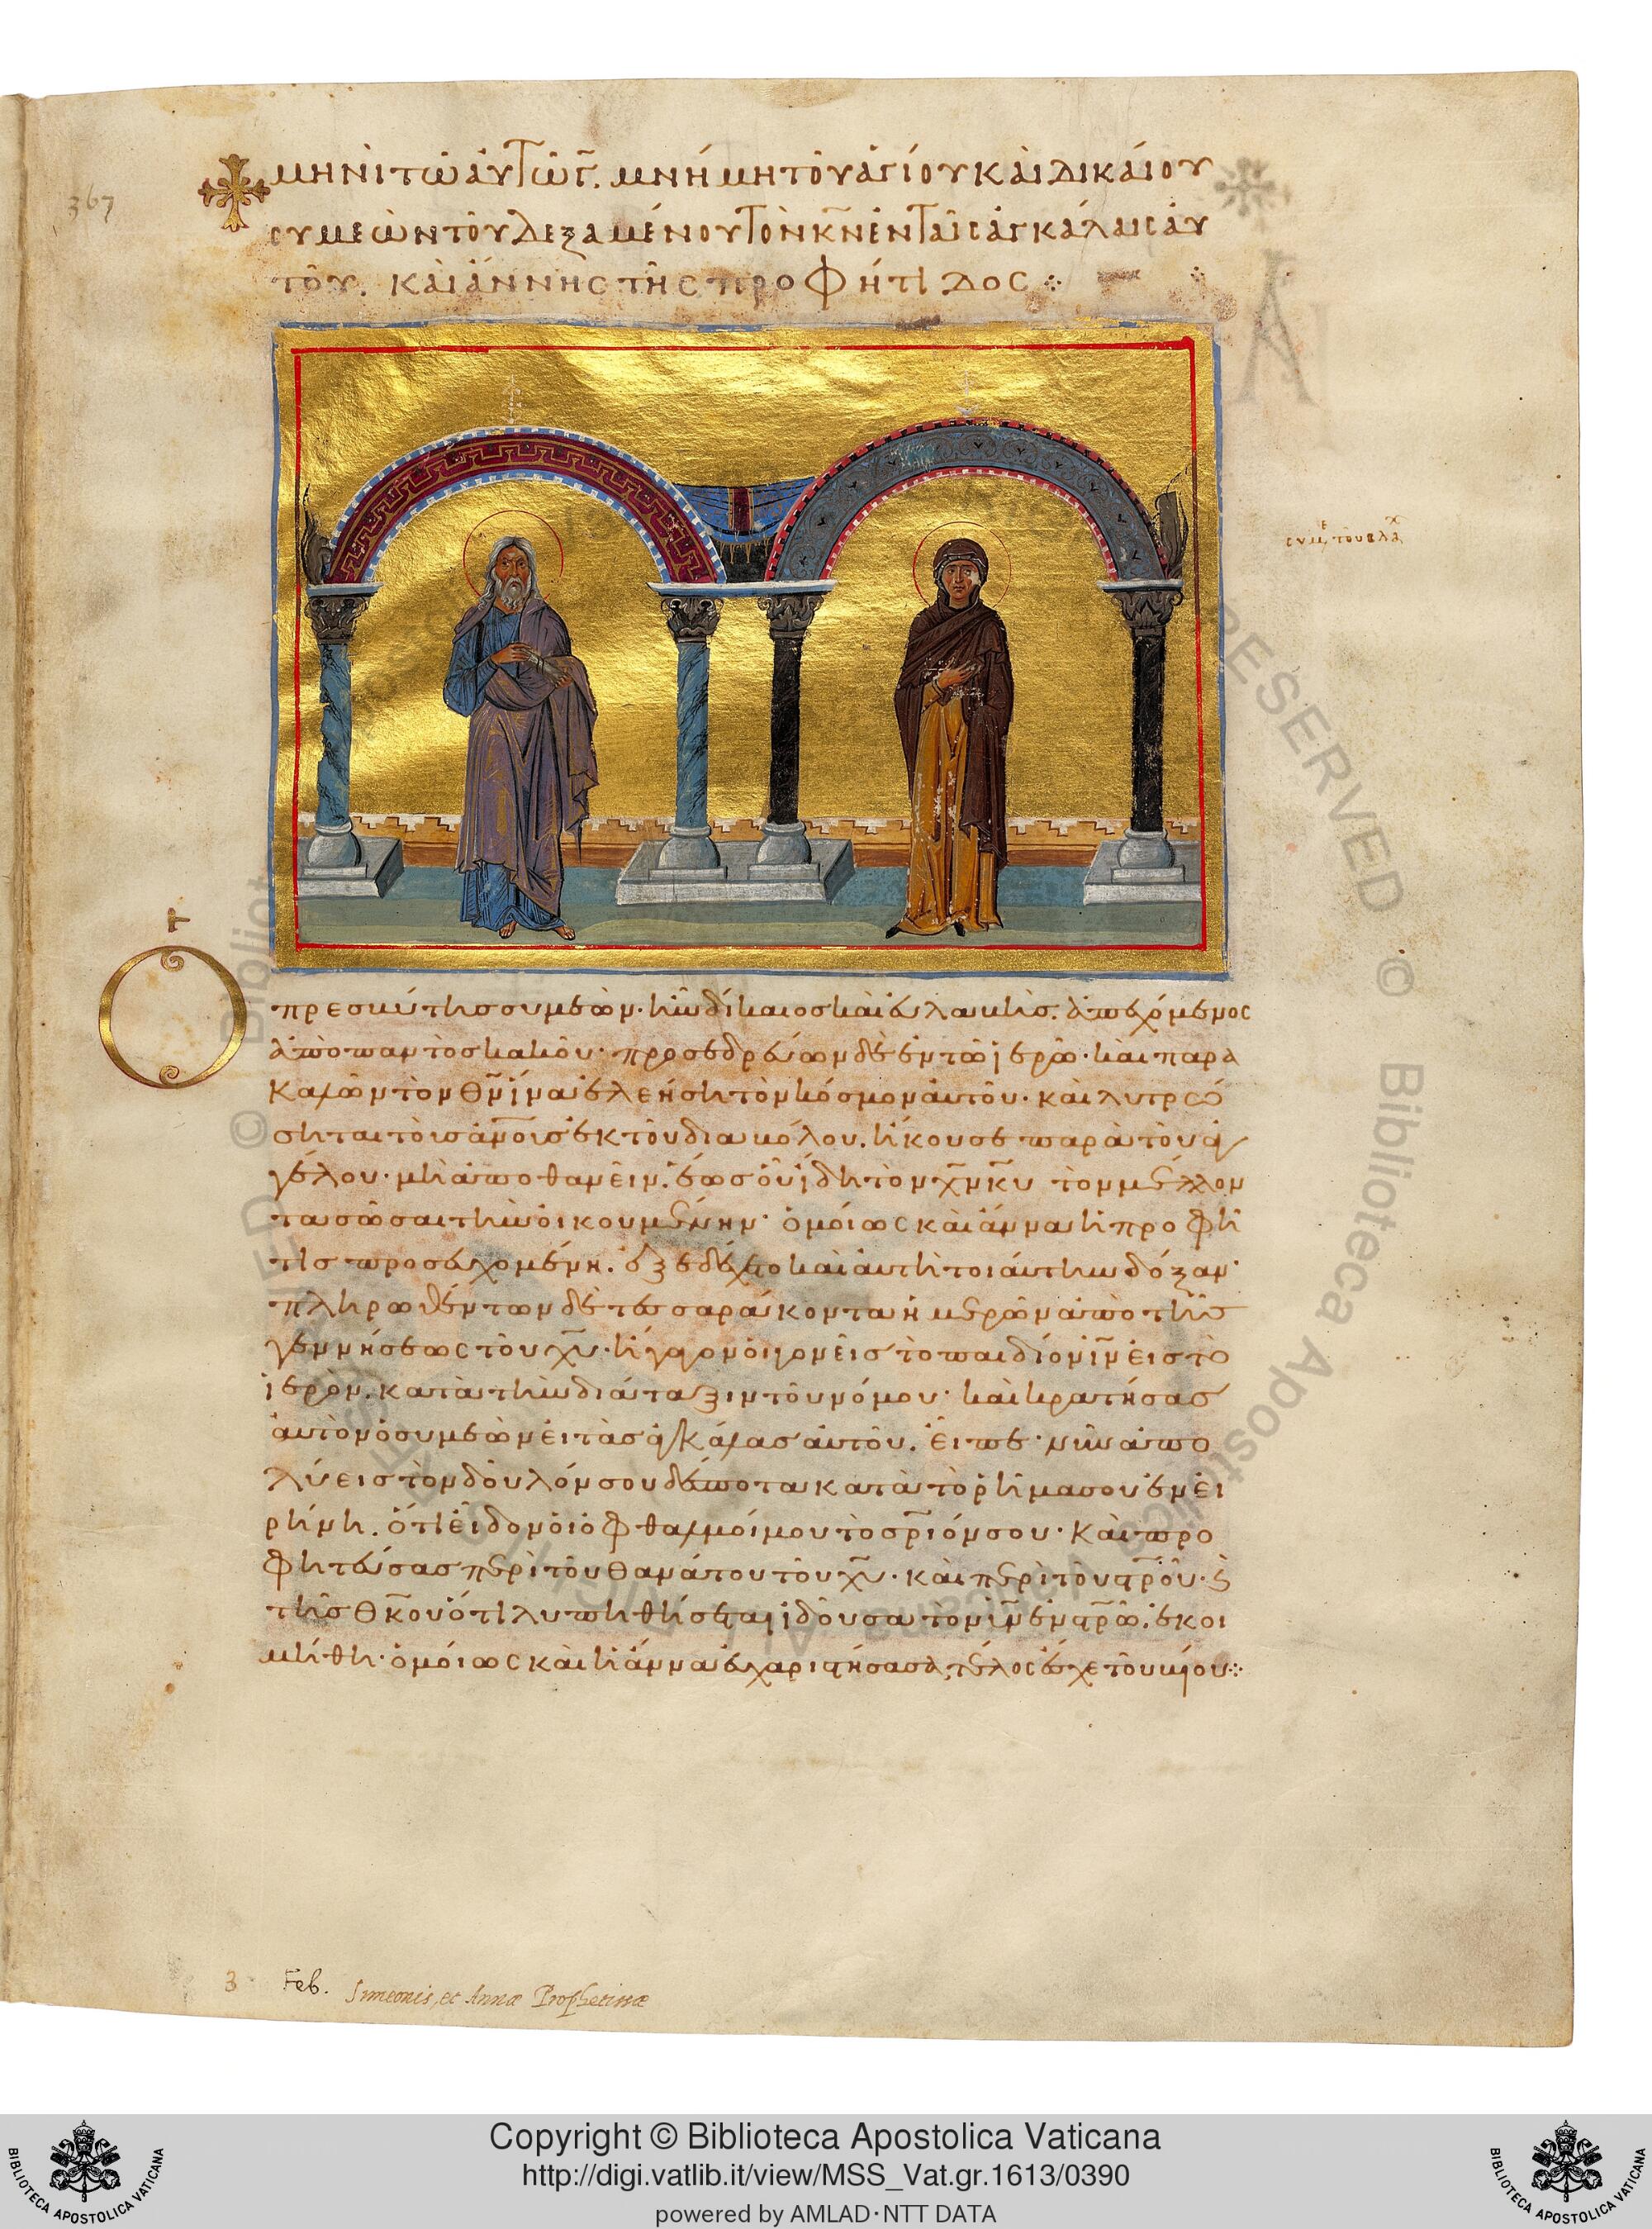 367
μηνὶ τῶ ἀυτῶ γ̅. μνήμη τοῦ ἁγίου καὶ δικαίου
συμεὼν τοῦ δεξαμένου τὸν κ̅ν ἐν ταῖς ἀγκάλαις ἀυ
τοῦ. καὶ ἄννης τῆς προφήτιδος
συμε τοῦ βλαχ
Ο πρεσβύτης συμεὼν. ἦν δίκαιος καὶ ἐυλαβὴς. ἀπεχόμενος
ἀπὸ παντὸς κακοῦ· προσεδρεύων δὲ ἐν τῶ ἱερῶ· καὶ παρα
καλῶν τὸν θ̅ν ἵνα ἐλεήση τὸν κόσμον ἀυτοῦ. καὶ λυτρώ
σηται τοὺς ἀ̅ν̅ους ἐκ τοῦ διαβόλου. ἤκουσε παρὰ τοῦ ἀγ
γέλου· μὴ ἀποθανεῖν. ἕως οὗ ἴδη τὸν χ̅ν κ̅υ τὸν μέλλον
τα σῶσαι τὴν ὀικουμένην· ὁμοίως καὶ ἄννα ἡ προφῆ
τις προσευχομένη. ἐξεδέχετο καὶ ἀυτὴ τοιάυτην δόξαν·
πληρωθέντων δὲ τεσσαράκοντα ἡμερῶν ἀπὸ τῆς
γεννήσεως τοῦ χ̅υ. ἤγαγον ὁι γονεῖς τὸ παιδίον ι̅ν ἐις τὸ
ἱερὸν. κατὰ τὴν διάταξιν τοῦ νόμου· καὶ κρατήσας
ἀυτὸν ὁ συμεὼν ἐι τὰς ἀγκάλας ἀυτοῦ. ἐῖπε· νῦν ἀπο
λύεις τὸν δοῦλόν σου δέσποτα κατὰ τὸ ῥῆμα σου ἐν ἐι
ρήνη. ὅτι ἐῖδον ὁι ὀφθαλμοί μου τὸ σ̅ρ̅ιόν σου. καὶ προ
φητεύσας περὶ τοῦ θανάτου τοῦ χ̅υ. καὶ περὶ τοῦ σ̅ρ̅οῦ. ϗ
τῆς θ̅κου ὅτι λυπηθήσεται ἰδοῦσα τὸν ι̅ν ἐν σ̅ρ̅ῶ. ἐκοι
μήθη. ὁμοίως καὶ ἡ ἄννα ἐυχαριστήσασα, τέλος ἔσχε τοῦ βίου
3 Feb. Simeonis, et Annæ Prophetissæ
Copyright © Biblioteca Apostolica Vaticana
http://digi.vatlib.it/view/MSS_Vat.gr.1613/0390
powered by AMLAD·NTT DATA
BIBLIOTECA APOSTOLICA VATICANA
BIBLIOTECA APOSTOLICA VATICANA